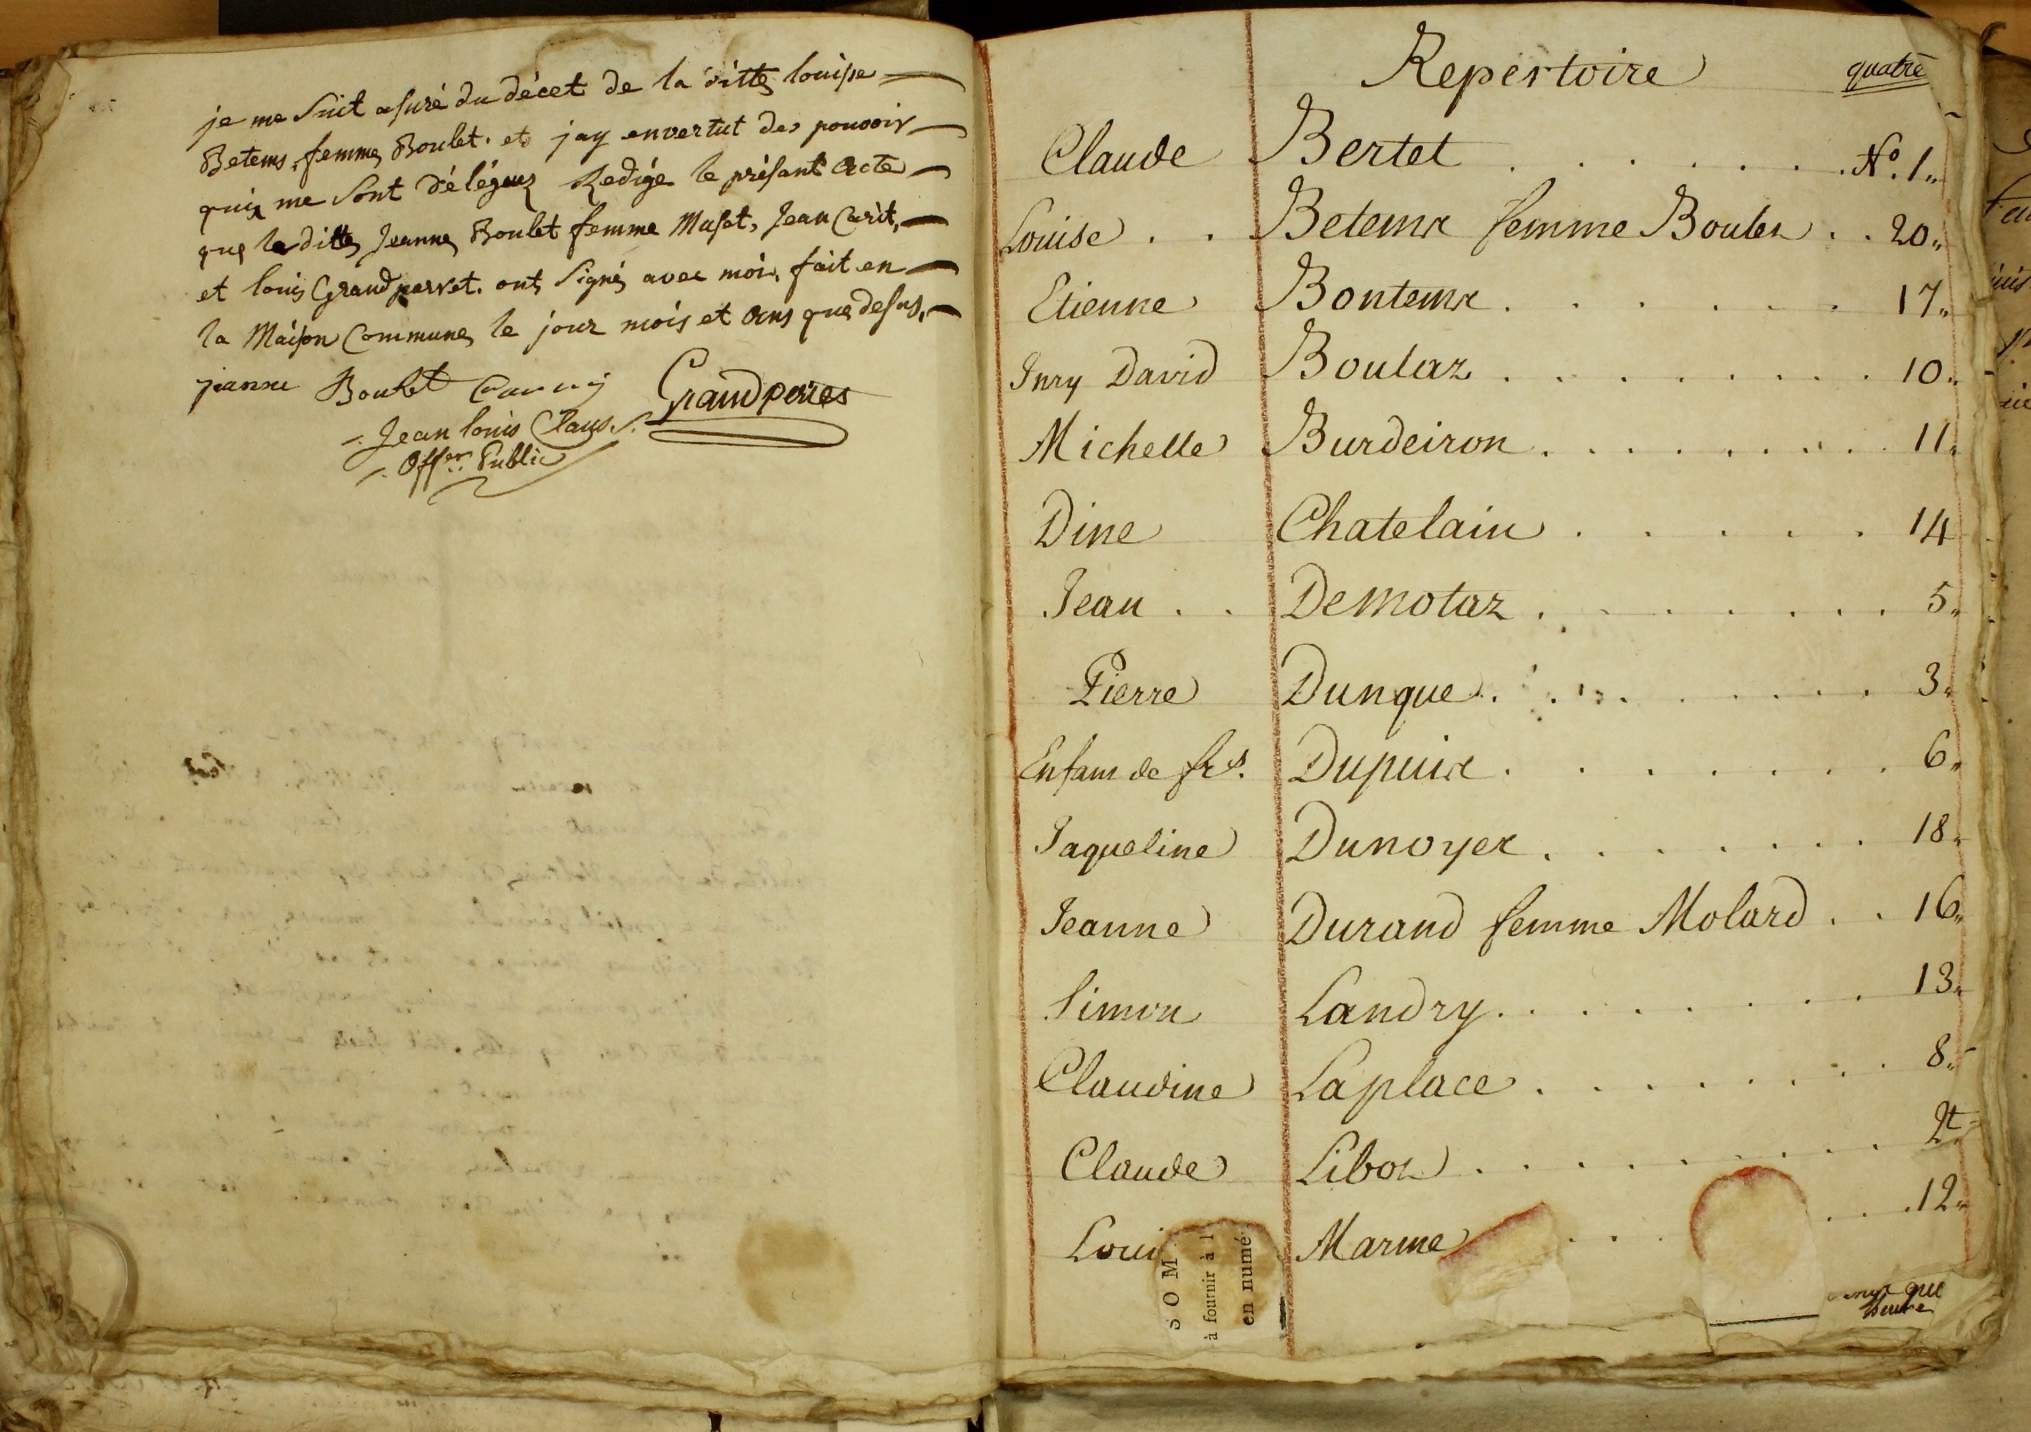 je me suit asuré du décet de la ditte louise
Betems femme Boulet. et jay envertut des pouvoir
qui me sont délégues Redigé le présant Acte
que la ditte Jeanne Boulet femme Muset, Jean
et louis Grandperret. ont signé avec moi, fait en
la Maison Commune le jour mois et ans que desus,
jeanne Boulet Grandperret
Jean louis Claus
Offer. Public
Repertoire quatre
Claude Bertet . . . . . . . No. 1.
Louise . . Betems femme Boulet . . 20.
Etienne Bontems . . . . . . . 17.
Inry David Boulaz . . . . . . . . 10.
Michelle Burdeiron . . . . . . . . 11.
Dine Chatelain . . . . . 14
Jean . . Demotaz . . . . . . . . 5.
Pierre Dunque . . . . . . . . 3.
Enfans de frs. Dupuis . . . . . . . 6.
Jaqueline Dunoyer . . . . . . . 18.
Jeanne Durand femme Molard . . 16.
Simon Landry . . . . . . . 13.
Claudine Laplace . . . . . . . . 8.
Claude Libot . . . . . . . . .
Loui Marme . . . . . . 12.
SOM
à fournir à l
en numé